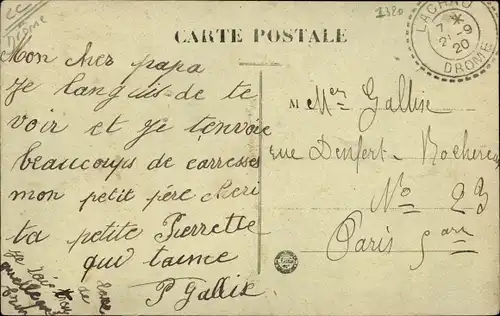 Drôme
1380
CARTE POSTALE
LACHAU
7 *
2 -9
20
DROME
Mon cher papa
Je languis de te
voir et je t'envoie
beaucoups de carresses
mon petit père cheri
ta petite Pierrette
qui taime
P Gallix
M Mer Gallise
rue Denfert-Rochereau
No 23
Paris 5 arr